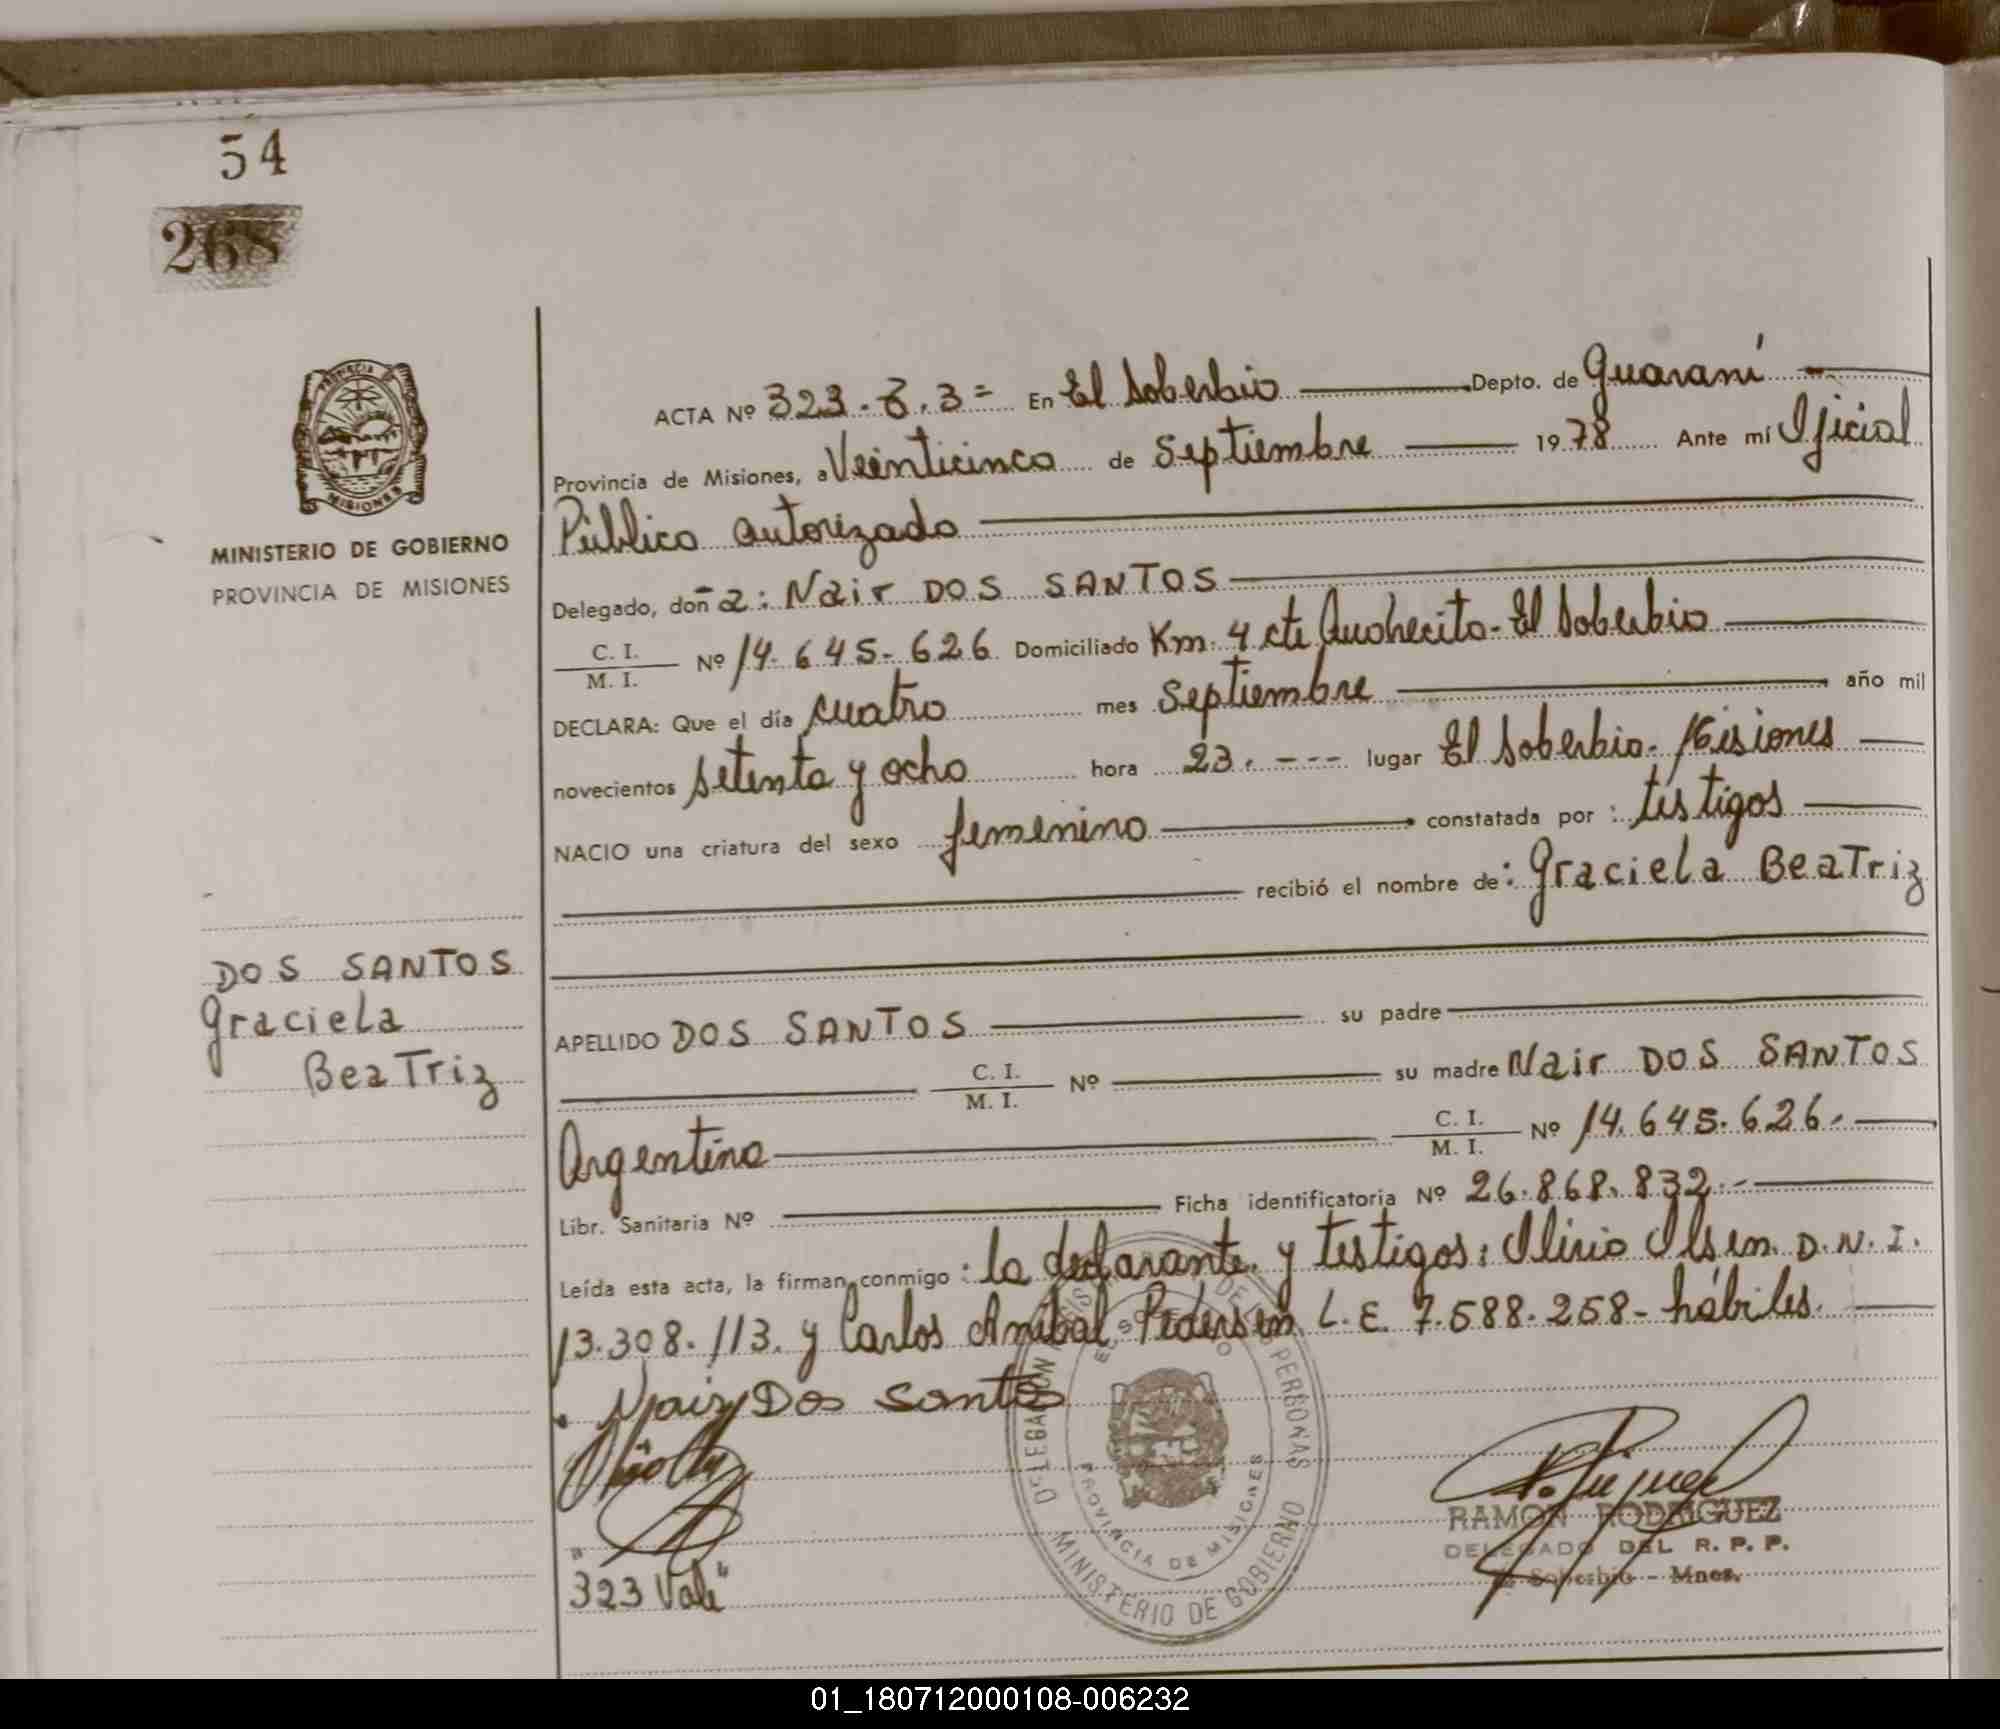 54
268
PROVINCIA DE
MISIONES
MINISTERIO DE GOBIERNO
PROVINCIA DE MISIONES
DOS SANTOS
Graciela
BeaTriz
ACTA Nº 323.3.3= En El Soberbio Depto. de Guaraní
Provincia de Misiones, a Veinticinco de Septiembre 1978 Ante mí Oficial
Público autorizado
Delegado, doña: Nair DOS SANTOS
C. I. / M. I. Nº 14.645.626 Domiciliado Km. 4 El Soberbio
DECLARA: Que el día cuatro mes Septiembre año mil
novecientos setenta y ocho hora 23.--- lugar El Soberbio- Misiones
NACIO una criatura del sexo femenino constatada por: testigos
recibió el nombre de: Graciela BeaTriz
APELLIDO DOS SANTOS su padre
C. I. / M. I. Nº su madre Nair DOS SANTOS
Argentina C. I. / M. I. Nº 14.645.626.-
Libr. Sanitaria Nº Ficha identificatoria Nº 26.868.832.-
Leída esta acta, la firman conmigo: la declarante y testigos: Olsen D.N.I.
13.308.113. y Carlos Anibal Pedersen L.E. 7.588.258- hábiles.
Nair Dos Santos
"323 Vale"
DELEGACION DE PERSONAS
EL SOBERBIO
PROVINCIA DE MISIONES
MINISTERIO DE GOBIERNO
RAMON RODRIGUEZ
DELEGADO DEL R. P. P.
Soberbio - Mnes.
01_180712000108-006232